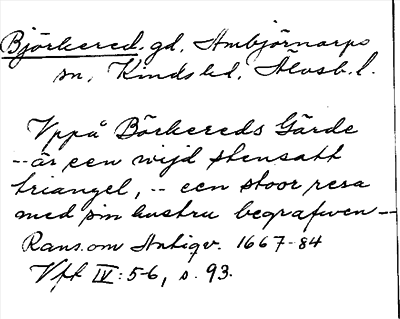 Björkered, gd, Ambjörnarps
sn, Kinds hd, Älvsb. l.
Vppå Börkereds Gärde
-- är een wijd stensatt
triangel, -- een stoor resa
med sin hustru begrafwen --
Rans. om Antiqv. 1667-84
Vft IV: 5-6, s. 93.